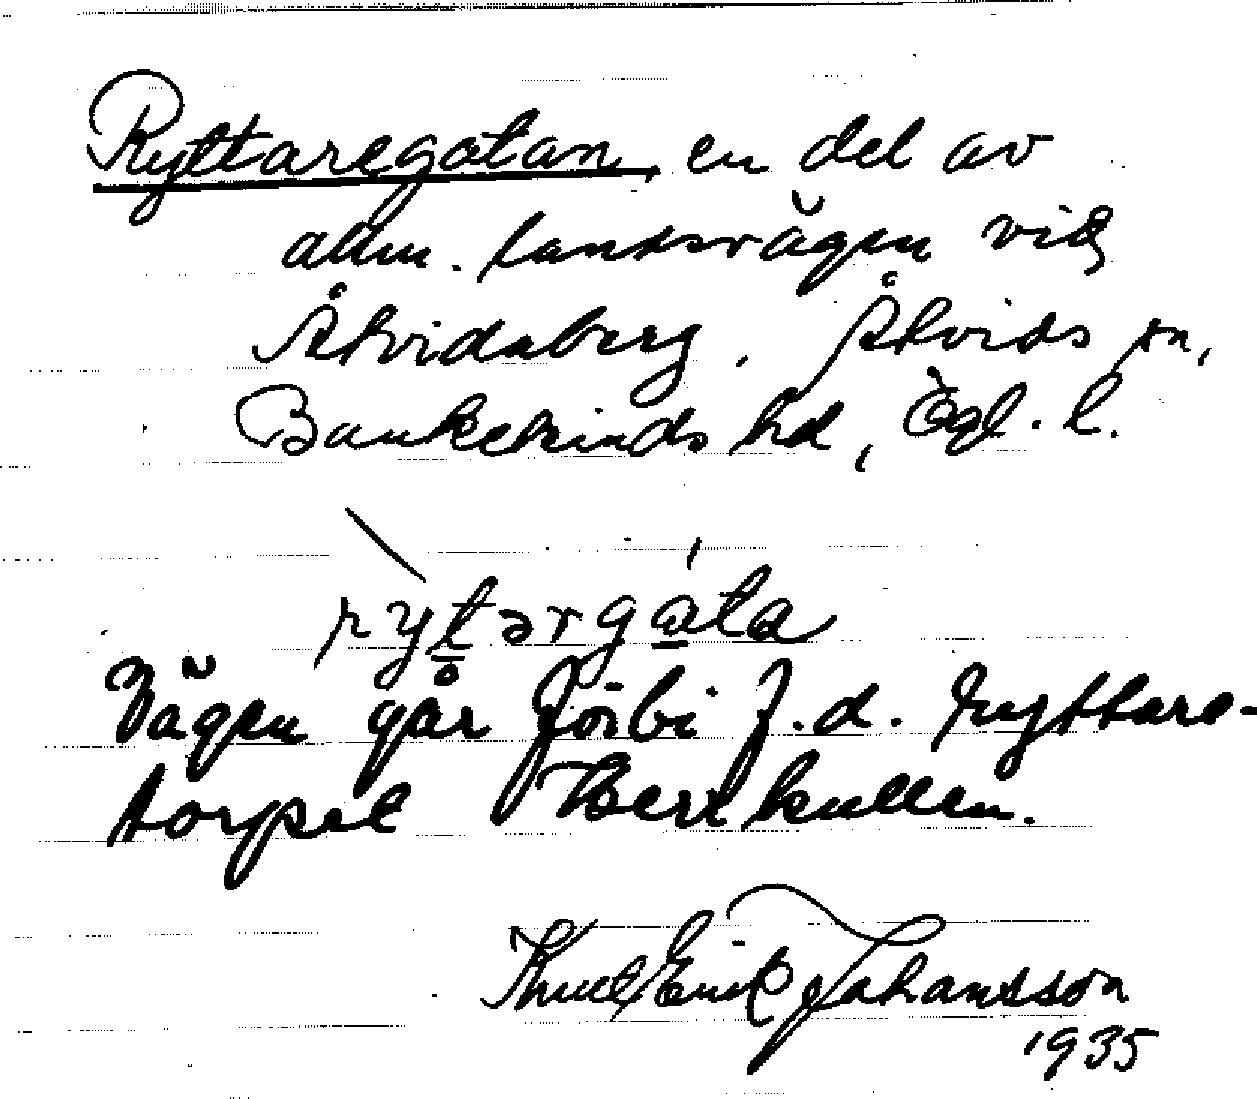 Ryttaregatan, en del av
allm. landsvägen vid
Åtvidaberg, Åtvids sn,
Bankekinds hd, Ögl. l.
rytərgata
Vägen går förbi f.d. ryttare-
torpet Berkullen.
Knut Erik Johansson
1935